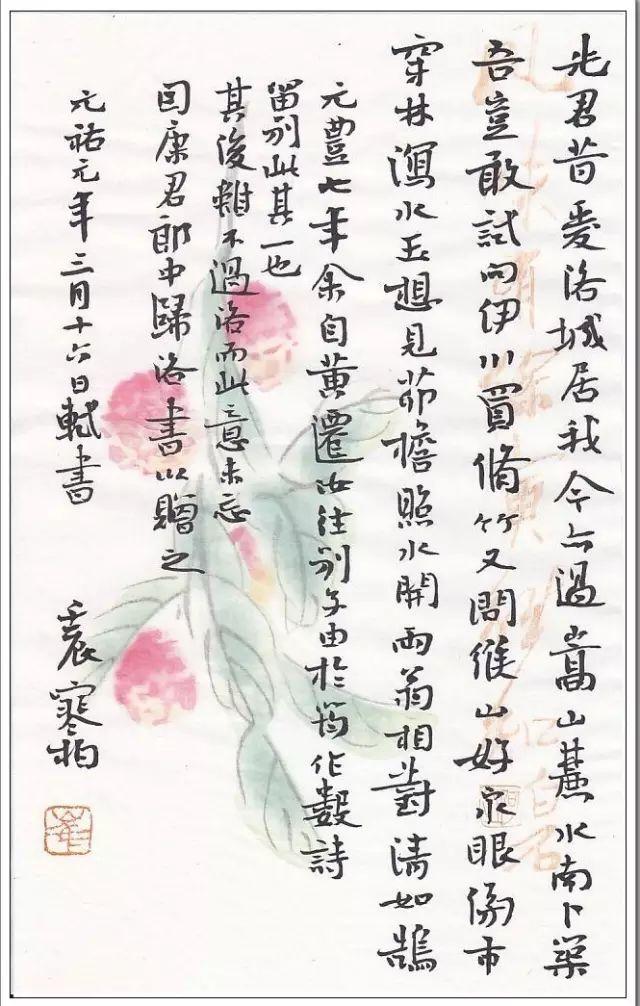 先君昔爱洛城居我今亦過嵩山麓水南卜築
吾豈敢試向伊川買脩竹又問緱山好泉眼傍市
穿林瀉冰玉想見茆檐照水開兩翁相對清如鵠
元豊七年余自黄遷汝往别子由於筠作數詩
留别此其一也
其後雖不過洛而此意未忘
因康君郎中歸洛書以贈之
元祐元年三月十六日軾書
寒柏